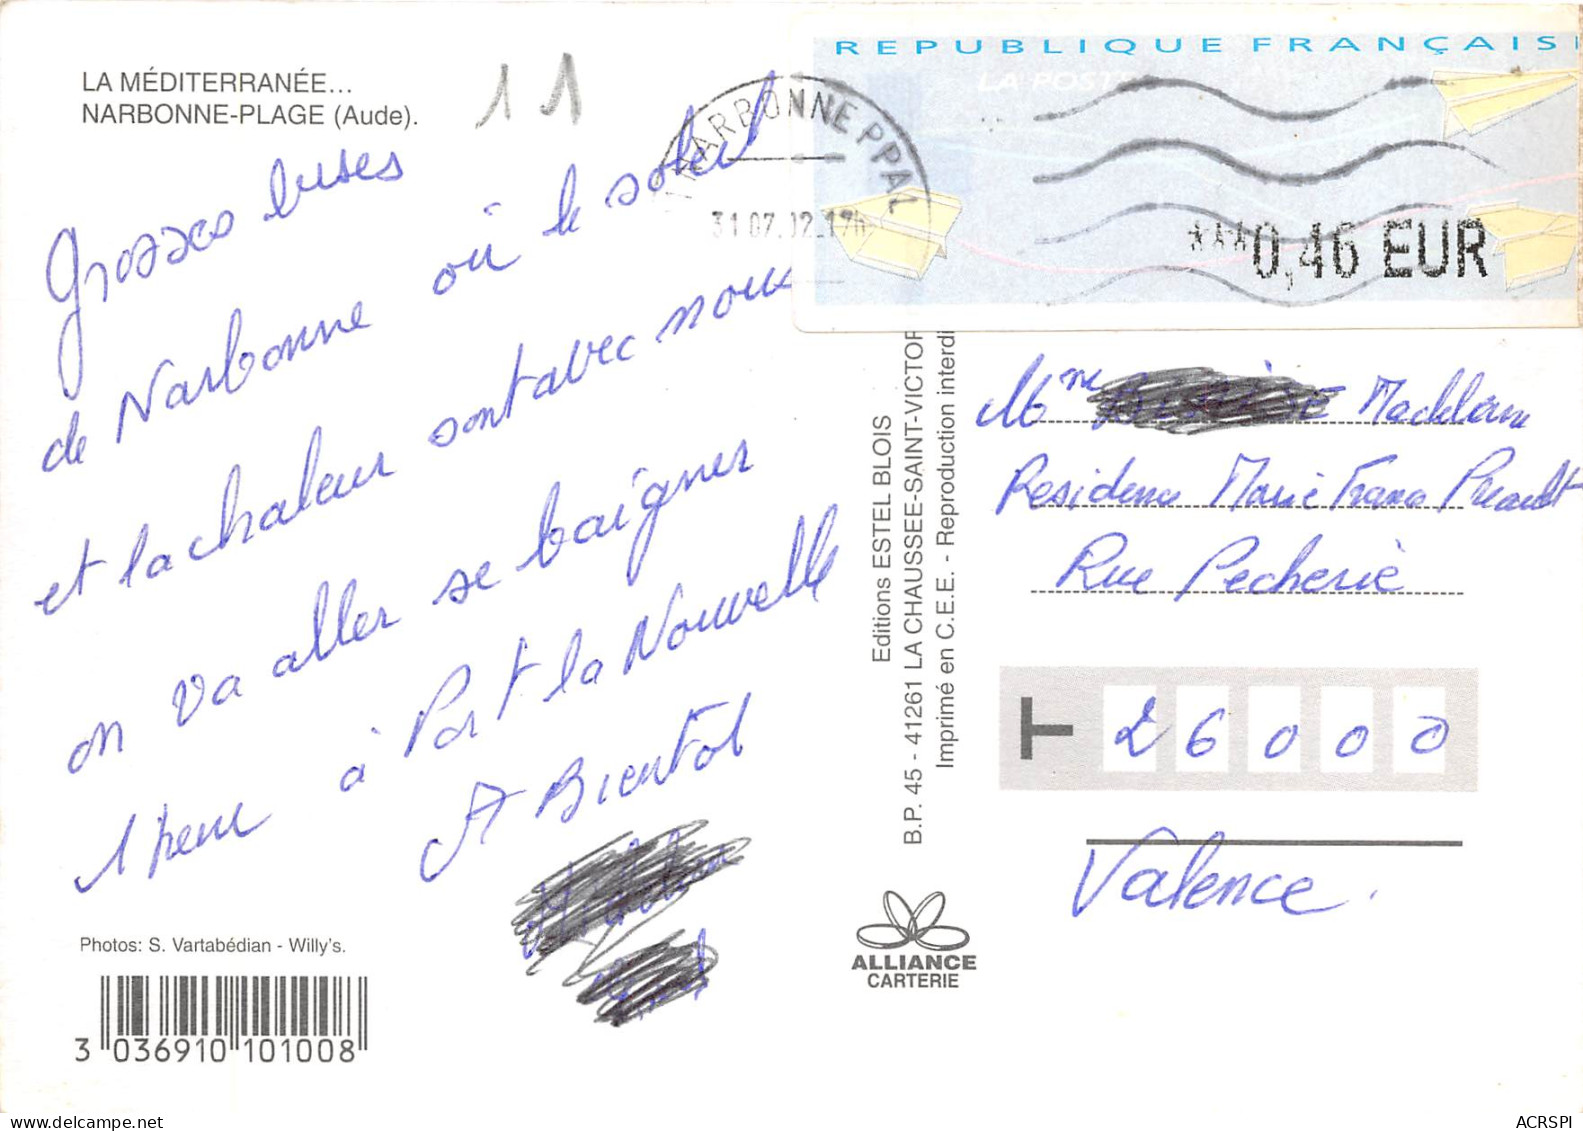 LA MÉDITERRANÉE...
NARBONNE-PLAGE (Aude).
11
Grosses bises
de Narbonne où le soleil
et la chaleur sont avec nous
on va aller se baigner
1 peu à Port la Nouvelle
A Bientot
Photos: S. Vartabédian - Willy's.
3 036910 101008
Editions ESTEL BLOIS
B.P. 45 - 41261 LA CHAUSSEE-SAINT-VICTOR
Imprimé en C.E.E. - Reproduction interdi
ALLIANCE
CARTERIE
REPUBLIQUE FRANÇAIS
LA POSTE
NARBONNE PPAL
31.07.02.17h
***0,46 EUR
Mme
Residence Marie France
Rue Pecherie
T 26000
Valence.
ACRSPI